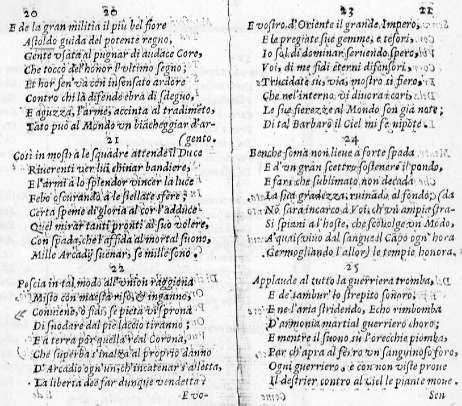 20 20
E de la gran militia il più bel fiore
Astoldo guida del potente regno,
Gente usata al pugnar di audace Core,
Che toccò del'honor l'vltimo segno;
Et hor sen'và con insensato ardore
Contro chi là difende ebra di sdegno,
E aguzza, l'arme, accinta al tradimẽto,
Tato può al Mondo vn biãcheggiar d'ar-
(gento.
21
Così in mostra le squadre attende il Duce
Riuerenti ver lui chinar bandiere,
E l'armi a lo splendor vincer la luce
Febo oscurando à le stellate sfere;
Certa speme di gloria al cor l'adduce
Quel mirar tanti pronti al suo volere,
Con spada, che l'affida al mortal suono,
Mille Arcadij suenar, se mille sono.
22
Poscia in tal modo all'vnion raggiona
Misto con maestà riso, & inganno,
Conuiene, ò fidi, se pietà vi sprona
Di snodare dal piè laccio tiranno;
E a terra por quella real Corona,
Che superba s'inalza al proprio danno
D'Arcadio ogn'un, ch'incatenar s'alletta,
La libertà dee far dunque vendetta
E vo-
23 21
E vostro, d'Oriente il grande Impero,
E le pregiate sue gemme, e tesori,
Io sol di dominar seruendo spero,
Voi, di me fidi eterni difensori,
Trucidate sù, via, mostro sì fiero,
Che nell'interno vi diuora i cori,
Le sue fierezze al Mondo son già note;
Di tal Barbaro il Ciel mi fe nipote.
24
Benche soma non lieue a forte spada
E d'vn gran scettro sostenere il pondo,
E far sì che sublimato non decada
La sua grãdezza, ruinãdo al fondo;
Nõ sarà incarco à Voi, ch'vn ampia strada
Si spiani a l'hoste, che scõuolge vn Modo,
A' quai viuo dal sangue al Capo ogn'hora
Germogliando l'allor, le tempie honora.
25
Applaude al tutto la guerriera tromba,
E de tambur' lo strepito sonoro;
E ne l'aria stridendo, Echo rimbomba
D'armonia martial guerriero choro;
E mentre il suono sù l'orecchie piomba,
Par ch'apra al ferro vn sanguinoso foro,
Ogni guerriero, e con non viste proue
Il destrier contro al Ciel le piante moue.
Sen